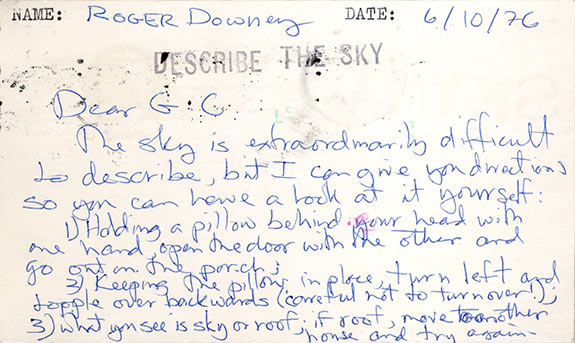 NAME: ROGER Downey DATE: 6/10/76
DESCRIBE THE SKY
Dear G. C.:
The sky is extraordinarily difficult
to describe, but I can give you directions
so you can have a look at it yourself:
1) Holding a pillow behind your head with
one hand, open the door with the other and
go out on the porch;
2) Keeping the pillow in place, turn left and
topple over backwards (careful not to turn over!);
3) what you see is sky or roof; if roof, move to another
house and try again.